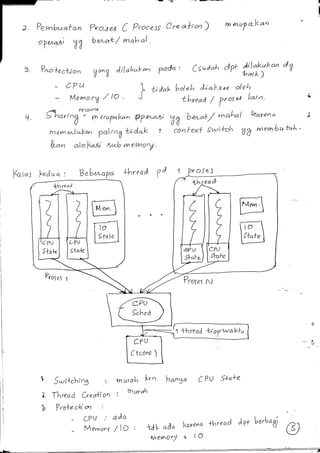 2. Pembuatan Proses ( Process Creation ) merupakan
operasi yg berat / mahal.
3. Protection yang dilakukan pada : ( Sudah dpt dilakukan dg baik )
- CPU
- Memory / IO.
} tidak boleh diakses oleh
thread / proses lain.
4. Sharing resource merupakan operasi yg berat / mahal karena
memerlukan paling tidak 1 context switch yg membutuh-
kan alokasi sub memory.
Kasus kedua : Beberapa thread pd 1 proses
thread
Mem
IO
State
CPU
State
CPU
State
. . .
thread
Mem.
IO
State
CPU
State
CPU
State
Proses 1
Proses N
CPU
Sched
1 thread tiap waktu
CPU
( 1 core )
1 Switching : murah krn hanya CPU State
2 Thread Creation : murah
3 Protection :
- CPU : ada
- Memory / IO : tdk ada karena thread dpt berbagi
memory & IO
5